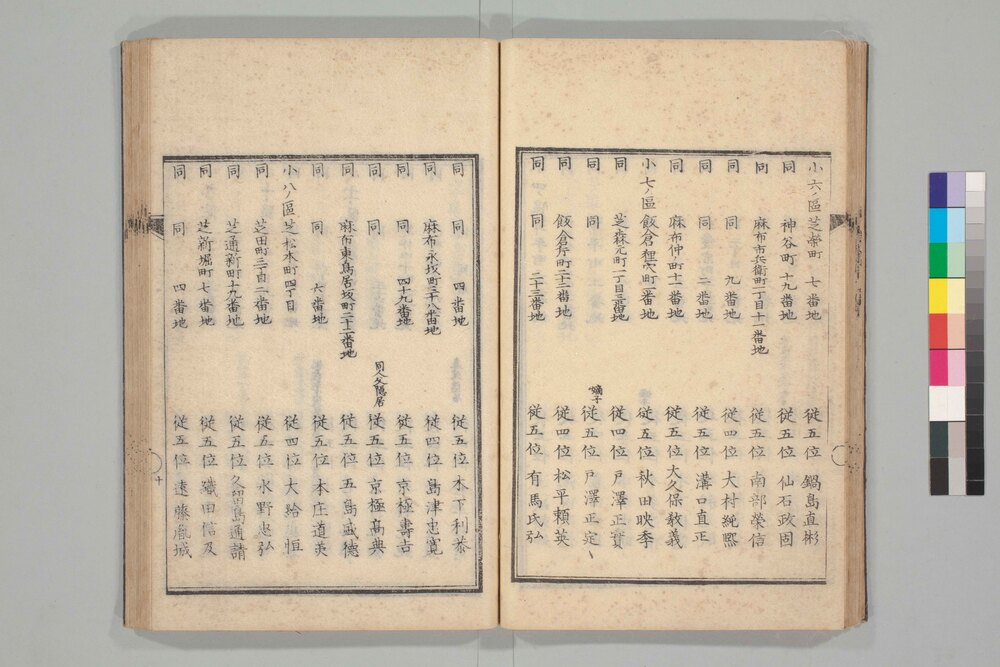 小六ノ區芝榮町 七番地 従五位 鍋島直彬
同 神谷町十九番地 従五位 仙石政固
同 麻布市兵衛町二丁目十一番地 従五位 南部榮信
同 同 九番地 従四位 大村純熈
同 同 二番地 従五位 溝口直正
同 麻布仲ノ町十一番地 従五位 大久保敎義
小七ノ區飯倉狸穴町一番地 従五位 秋田映季
同 芝森元町一丁目三番地 従四位 戸澤正實
同 同 嫡子 従五位 戸澤正定
同 飯倉片町二十一番地 従四位 松平頼英
同 同 二十三番地 従五位 有馬氏弘
同 同 四番地 従五位 木下利恭
同 麻布永坂町三十八番地 従四位 島津忠寛
同 同 四十九番地 従五位 京極壽吉
同 同 同人父隠居 従五位 京極高典
同 麻布東鳥居坂町二十二番地 従五位 五島盛徳
同 同 六番地 従五位 本庄道美
小八ノ區芝松本町四丁目 従四位 大給 恒
同 芝田町三丁目二番地 従五位 水野忠弘
同 芝通新町十九番地 従五位 久留島通靖
同 芝新堀町七番地 従五位 織田信及
同 同 四番地 従五位 遠藤胤城
十